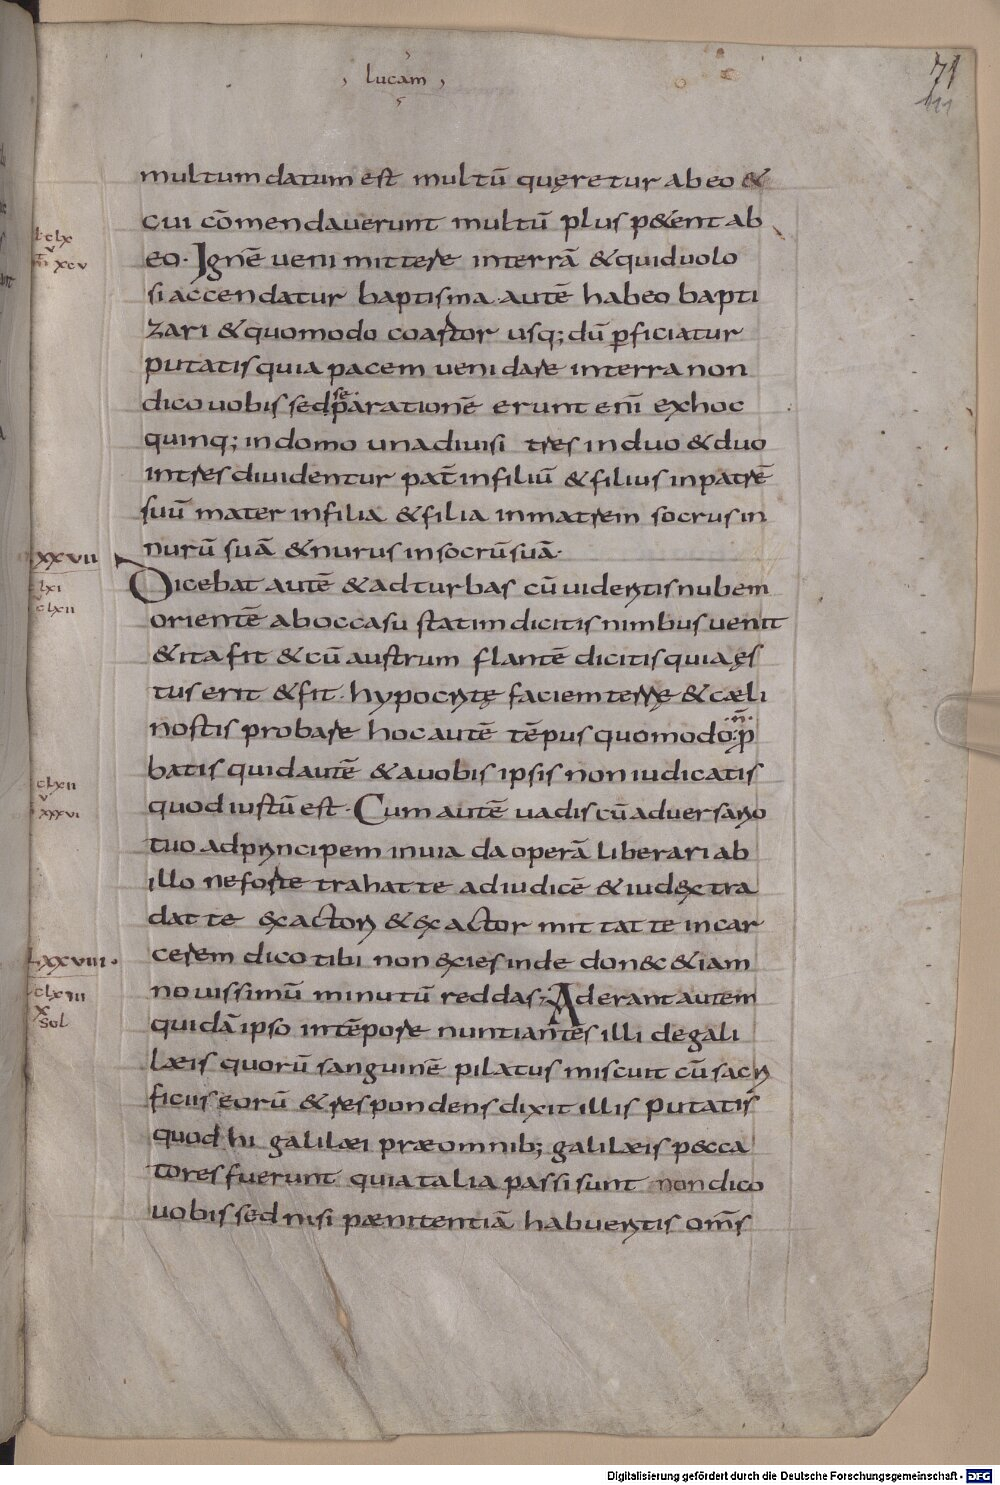 lucam
71
multum datum est multū quęretur ab eo &
cui cōmendaverunt multū plus p&ent ab
eo. Ignē veni mittere in terrā & quid volo
si accendatur baptisma autē habeo bapti
zari & quomodo coartor usq; dū perficiatur
putatis quia pacem veni dare in terra non
dico vobis sed separationē erunt eni exhoc
quinq; in domo una divisi tres in duo & duo
in tres dividentur pat in filiū & filius in patrē
suū mater in filia & filia in matrem socrus in
nurū suā & nurus in socrū suā.
Dicebat autē & ad turbas cū videritis nubem
orientē ab occasu statim dicitis nimbus venit
& ita fit & cū austrum flantē dicitis quia ęs
tus erit & fit. hypocritę faciem terrę & cæli
nostis probare hoc autē tēpus quomodo n̄ p
batis quid autē & a vobis ipsis non iudicatis
quod iustū est. Cum autē vadis cū adversario
tuo ad principem in via da operā liberari ab
illo ne forte trahat te ad iudicē & iudex tra
dat te exactori & exactor mittat te in car
cerem dico tibi non exies inde donec &iam
novissimū minutū reddas; Aderant autem
quidā ipso in tēpore nuntiantes illi de gali
læis quorū sanguinē pilatus miscuit cū sacri
ficiis eorū & respondens dixit illis putatis
quod hi galilæi præ omnib; galilæis pecca
tores fuerunt quia talia passi sunt non dico
vobis sed nisi pænitentiā habueritis om̄s
clx
xcv
LXXVII
clxi
clxii
clxii
v
xxxvi
LXXVIII.
clxiii
x
sol
Digitalisierung gefördert durch die Deutsche Forschungsgemeinschaft - DFG